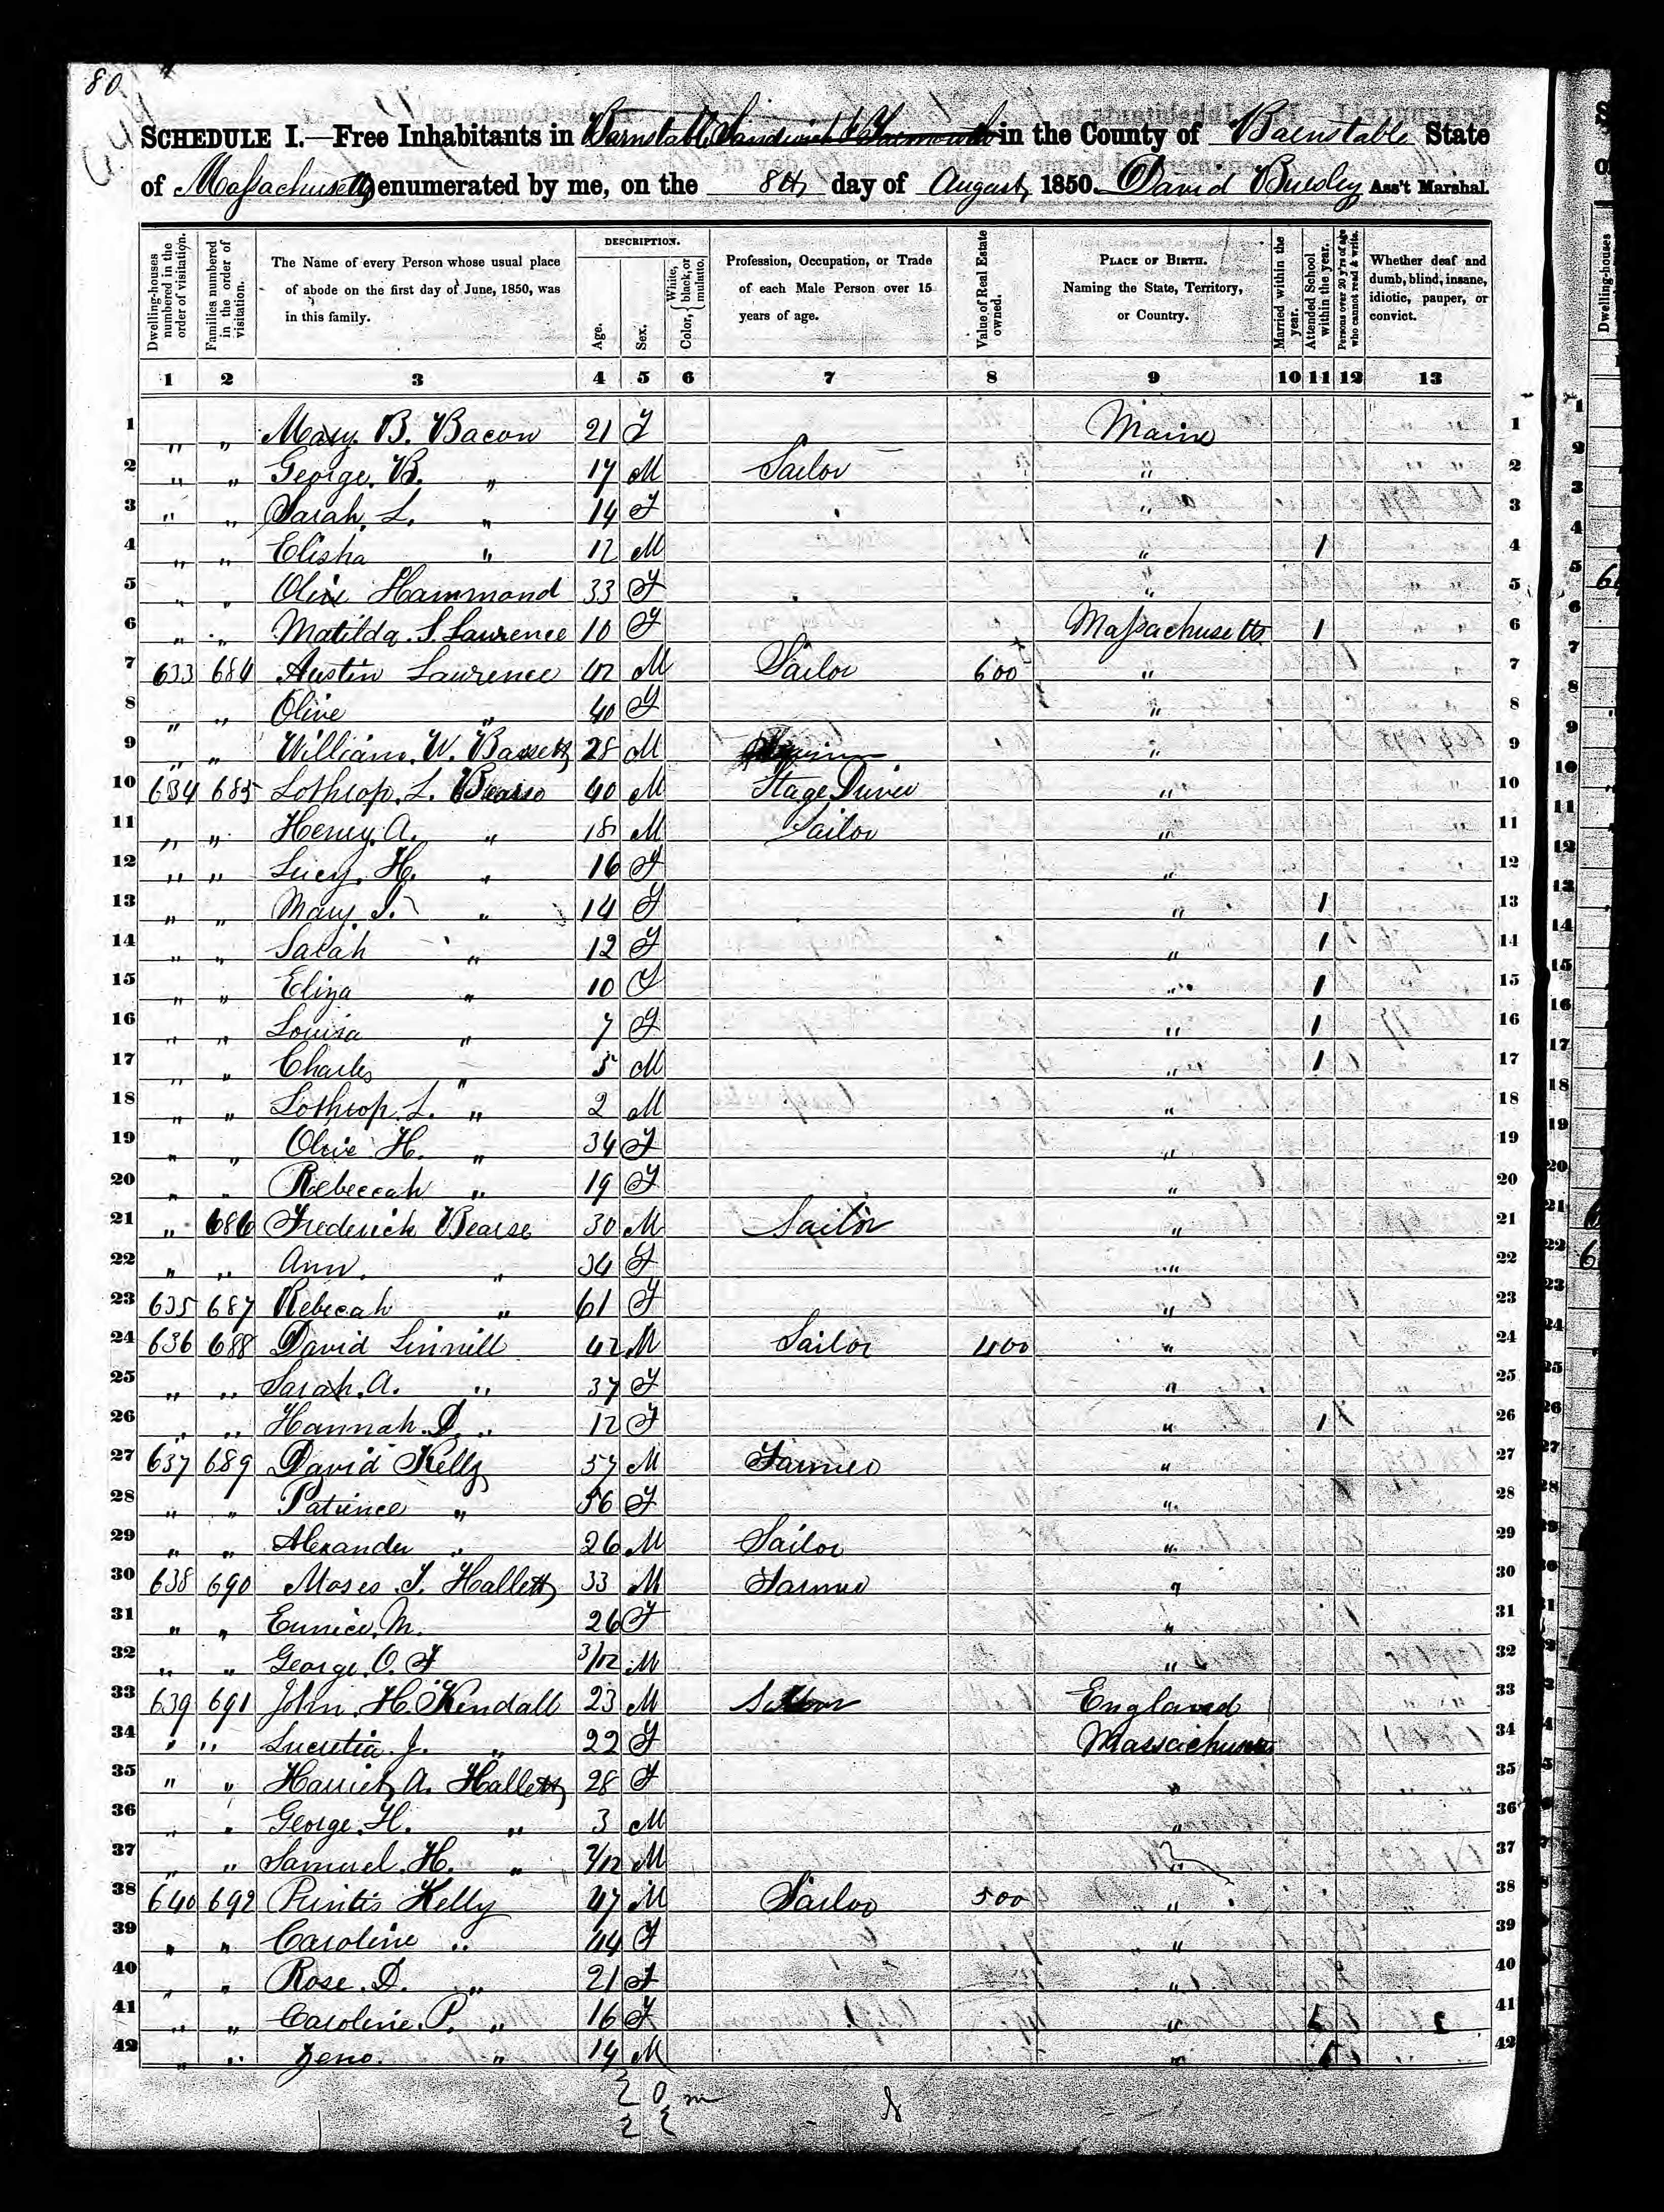 80
SCHEDULE I.—Free Inhabitants in Barnstable Sandwich & Yarmouth in the County of Barnstable State
of Massachusetts enumerated by me, on the 8th day of August, 1850. David Bursley Ass't Marshal.
Dwelling-houses numbered in the order of visitation.
Families numbered in the order of visitation.
The Name of every Person whose usual place of abode on the first day of June, 1850, was in this family.
DESCRIPTION.
Age.
Sex.
Color, White, black, or mulatto.
Profession, Occupation, or Trade of each Male Person over 15 years of age.
Value of Real Estate owned.
PLACE OF BIRTH. Naming the State, Territory, or Country.
Married within the year.
Attended School within the year.
Persons over 20 y'rs of age who cannot read & write.
Whether deaf and dumb, blind, insane, idiotic, pauper, or convict.
1 2 3 4 5 6 7 8 9 10 11 12 13
1 " " Mary B. Bacon 21 F Maine 1
2 " " George B. " 17 M Sailor " 2
3 " " Sarah L. " 14 F " 3
4 " " Elisha " 12 M " 1 4
5 " " Olive Hammond 33 F " 5
6 " " Matilda S. Laurence 10 F Massachusetts 1 6
7 633 684 Austin Laurence 42 M Sailor 600 " 7
8 " " Olive " 40 F " 8
9 " " William W. Bassett 28 M " 9
10 634 685 Lothrop L. Bearse 40 M Stage Driver " 10
11 " " Henry A. " 18 M Sailor " 11
12 " " Lucy H. " 16 F " 12
13 " " Mary " 14 F " 1 13
14 " " Sarah " 12 F " 1 14
15 " " Eliza " 10 F " 1 15
16 " " Louisa " 7 F " 1 16
17 " " Charles " 5 M " 1 17
18 " " Lothrop L. " 2 M " 18
19 " " Olive H. " 34 F " 19
20 " " Rebeccah " 19 F " 20
21 " 686 Frederick Bearse 30 M Sailor " 21
22 " " Ann " 34 F " 22
23 635 687 Rebecah " 61 F " 23
24 636 688 David Linnill 42 M Sailor 400 " 24
25 " " Sarah A. " 37 F " 25
26 " " Hannah D. " 12 F " 1 26
27 637 689 David Kelly 57 M Farmer " 27
28 " " Patience " 56 F " 28
29 " " Alexander " 26 M Sailor " 29
30 638 690 Moses F. Hallett 33 M Farmer " 30
31 " " Eunice M. 26 F " 31
32 " " George O. F 3/12 M " 32
33 639 691 John H. Kendall 23 M Sailor England 33
34 " " Lucretia J. " 22 F Massachusetts 34
35 " " Harriet A. Hallett 28 F " 35
36 " " George H. " 3 M " 36
37 " " Samuel H. " 7/12 M " 37
38 640 692 Kelly 47 M Sailor 500 " 38
39 " " Caroline " 44 F " 39
40 " " Rose D. " 21 F " 40
41 " " Caroline P. " 16 F " 1 41
42 " " Zeno " 14 M " 1 42